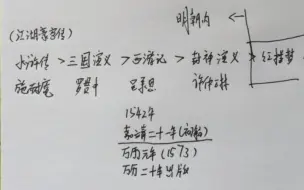 明朝内 ←
(江湖豪客传)
水浒传 > 三国演义 > 西游记 > 封神演义 > 红楼梦
施耐庵 罗贯中 吴承恩 许仲琳
1542年
嘉靖二十一年(初稿)
万历元年(1573)
万历二十年出版